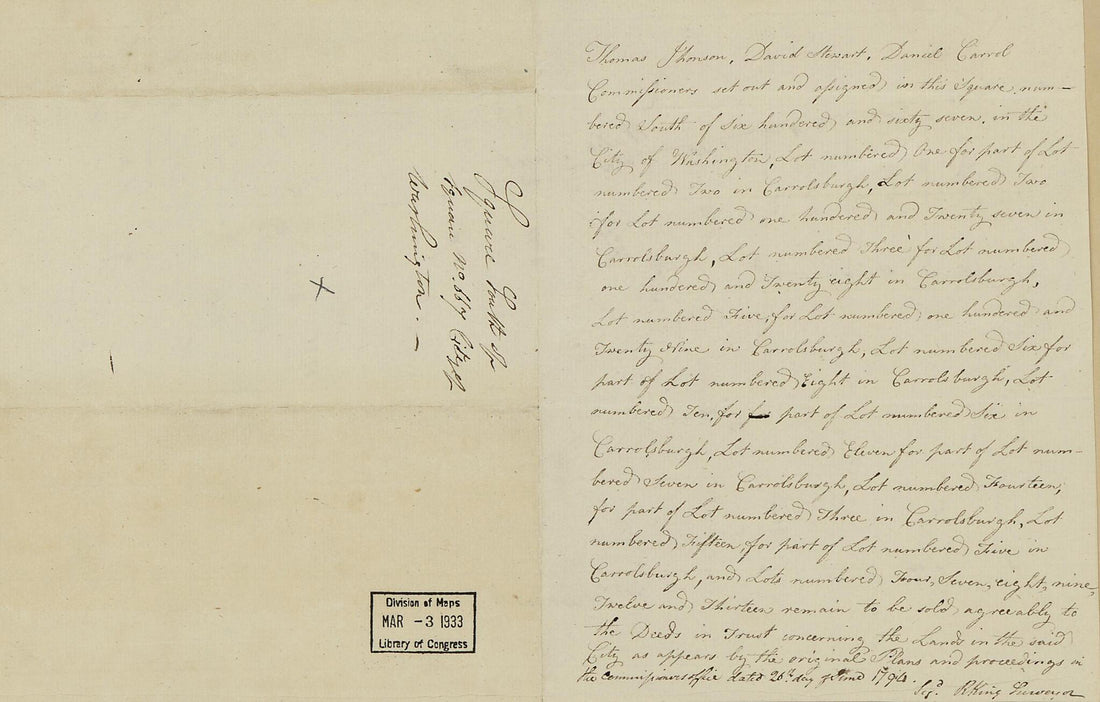 Square South of
Squair No. 667 City of
Washington. —
Division of Maps
MAR -3 1933
Library of Congress
Thomas Jhonson, David Stewart, Daniel Carrol
Commissioners set out and assigned in this Square num-
bered South of Six hundered and sixty seven, in the
City of Washington, Lot numbered One for part of Lot
numbered Two in Carrolsburgh, Lot numbered Two
for Lot numbered one hundered and Twenty seven in
Carrolsburgh, Lot numbered Three for Lot numbered
one hundered and Twenty eight in Carrolsburgh,
Lot numbered Five, for Lot numbered one hundered and
Twenty Nine in Carrolsburgh, Lot numbered Six for
part of Lot numbered Eight in Carrolsburgh, Lot
numbered Ten, for part of Lot numbered Six in
Carrolsburgh, Lot numbered Eleven for part of Lot num-
bered Seven in Carrolsburgh, Lot numbered Fourteen,
for part of Lot numbered Three in Carrolsburgh, Lot
numbered Fifteen, for part of Lot numbered Five in
Carrolsburgh, and Lots numbered Four, Seven, eight, nine,
Twelve and Thirteen remain to be sold agreeably to
the Deeds in Trust concerning the Lands in the said
City as appears by the original Plans and proceedings in
the commissioners office dated 26th day of June 1794.
Sig.d RKing Surveyor